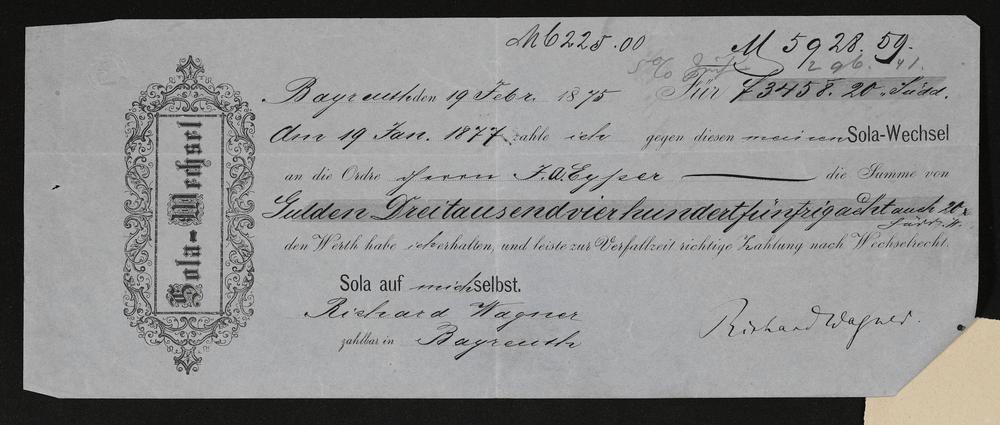 M 6225.00
M 5928.59.
5% 296.41.
Sola-Wechsel
Bayreuth den 19 Febr. 1875 Für f 3458. 20 Südd.
Am 19 Jan. 1877 zahle ich gegen diesen meinen Sola-Wechsel
an die Ordre Herrn J. A. Eyßer die Summe von
Gulden Dreitausendvierhundertfünfzigacht auch 20 x
Südd. W.
den Werth habe ich erhalten, und leiste zur Verfallzeit richtige Zahlung nach Wechselrecht.
Sola auf mich selbst.
Richard Wagner
zahlbar in Bayreuth
Richard Wagner.